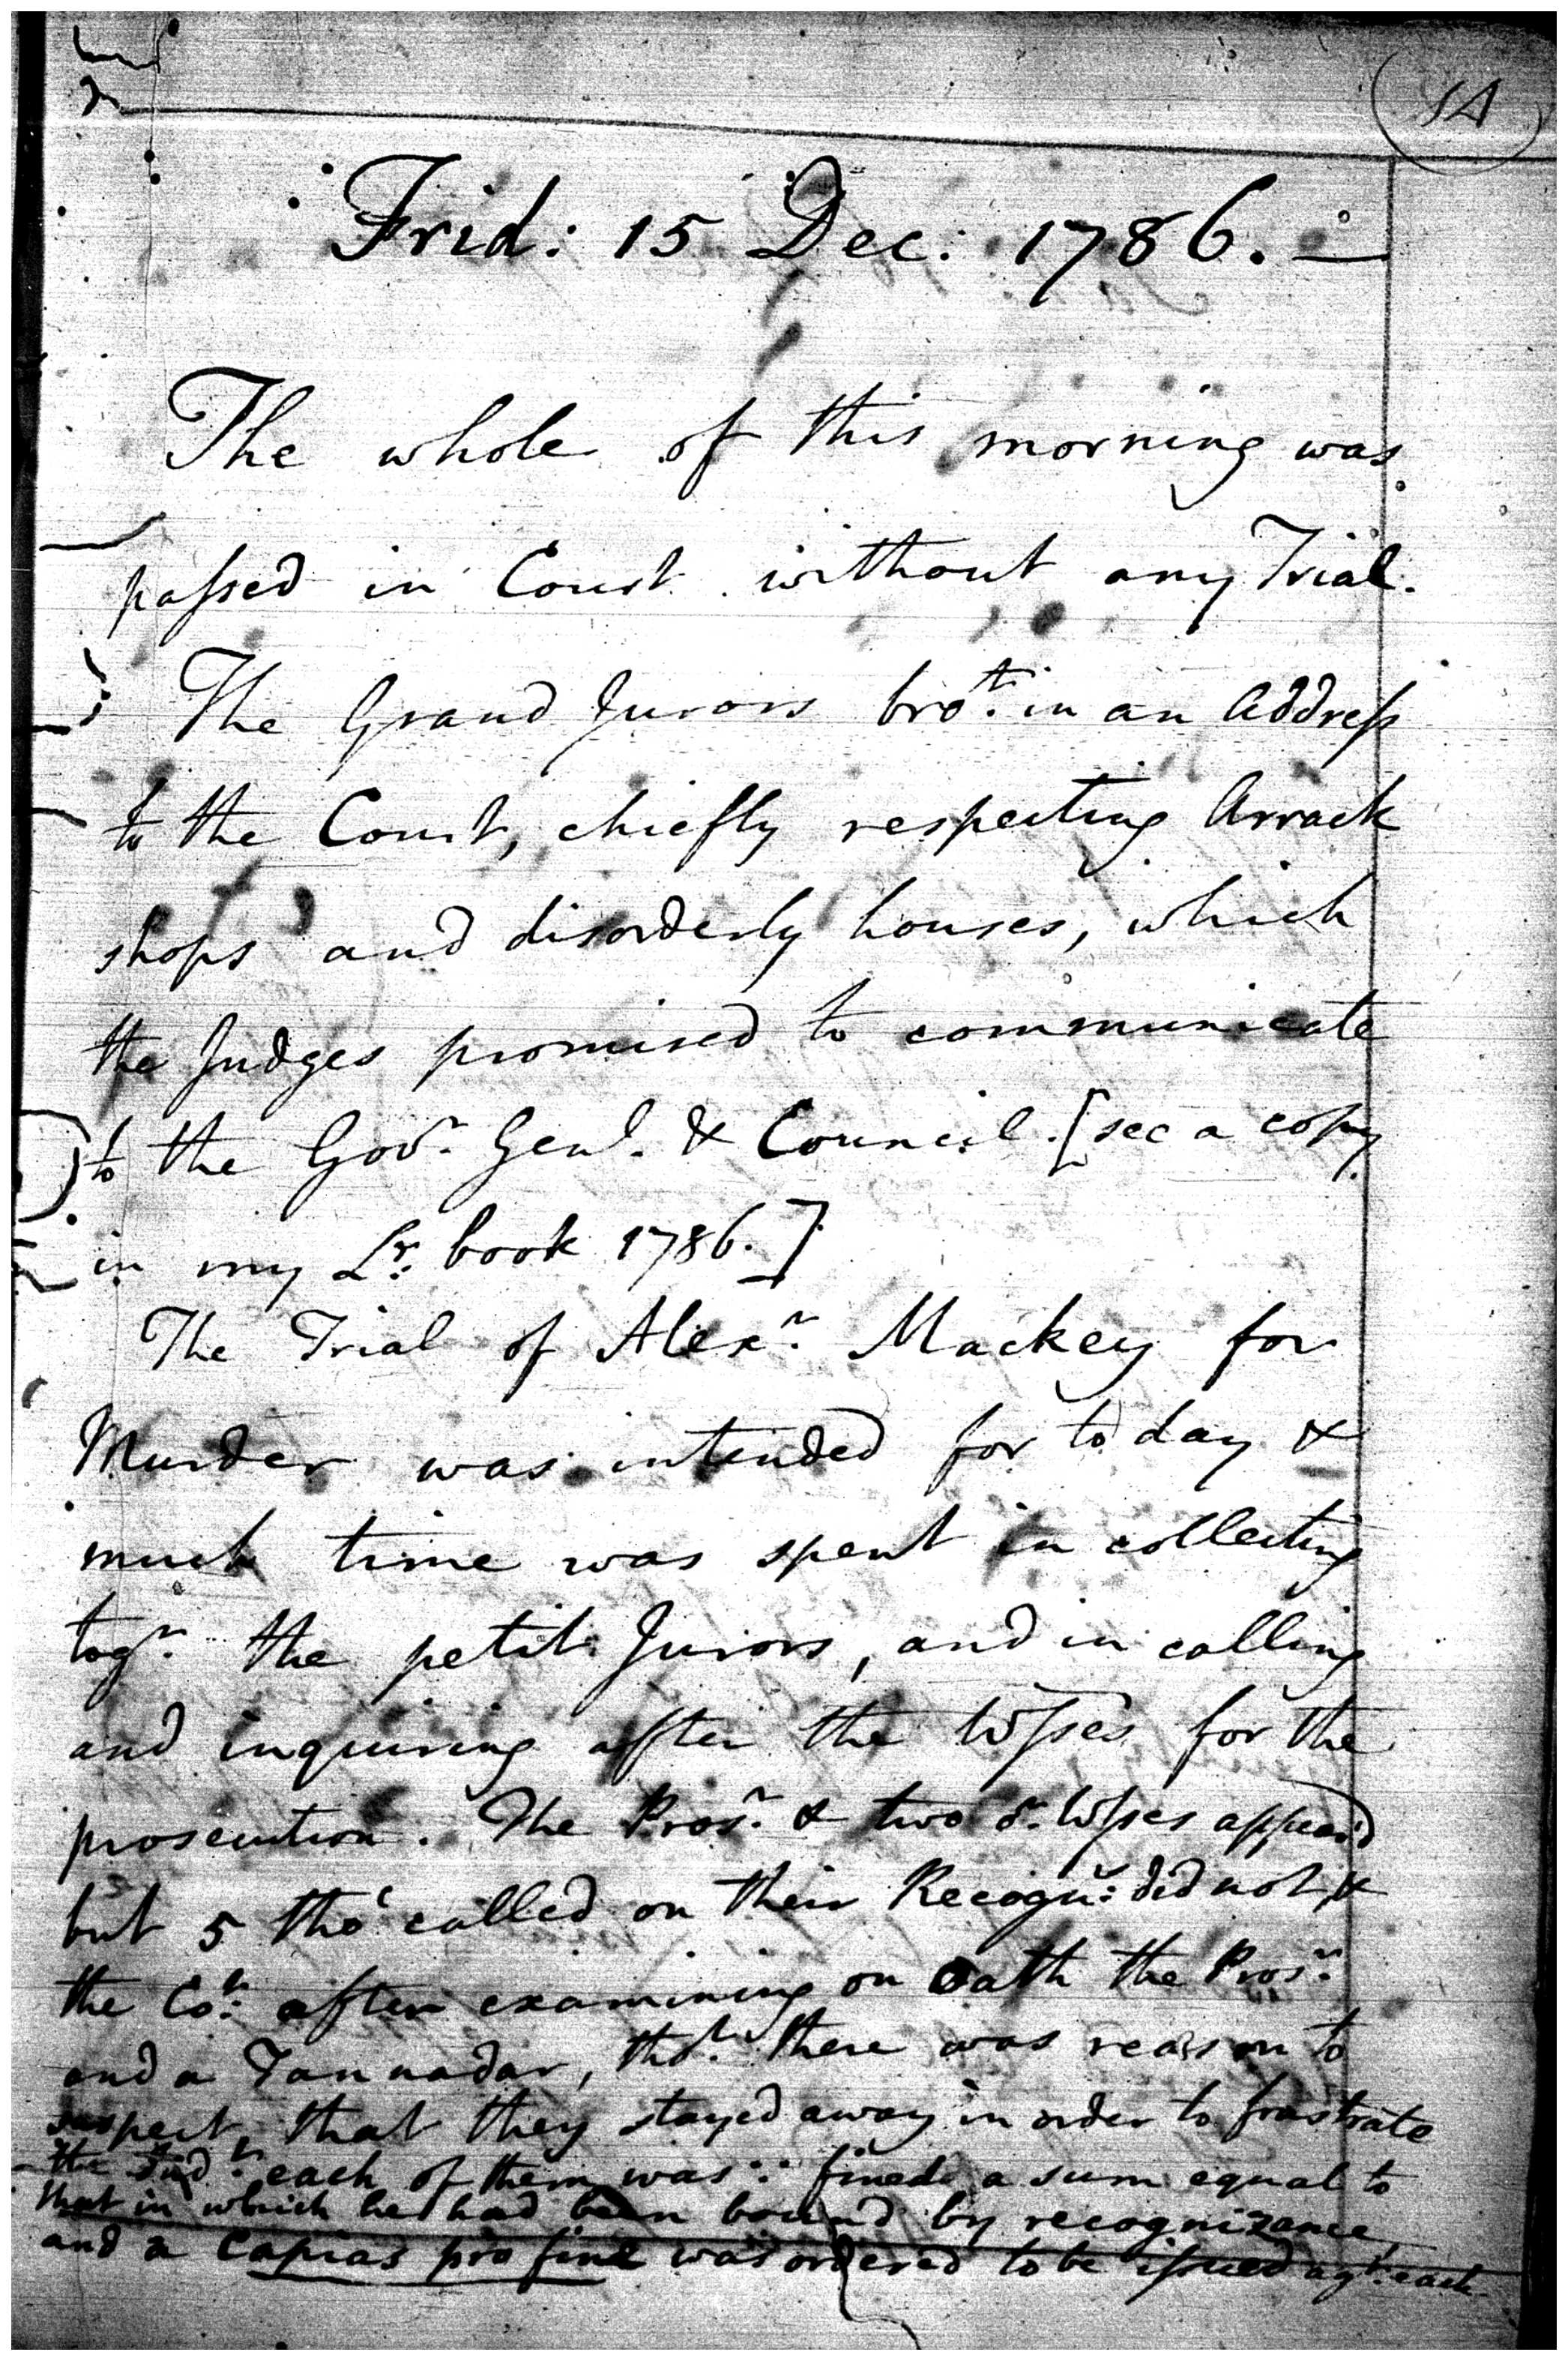 14
Frid: 15 Dec: 1786. —
The whole of this morning was
paſsed in Court without any Trial.
The Grand Jurors bro.t in an Addreſs
to the Court, chiefly respecting Arrack
shops and disorderly houses, which
the Judges promised to communicate
to the Gov.r Gen.l & Council. [see a copy
in my L.r book 1786.]
The Trial of Alex.r Mackey for
Murder was intended for to day &
much time was spent in collecting
tog.r the petit Jurors, and in calling
and inquiring after the Wſses for the
prosecution. The Pros.r & two o.r Wſses appear'd
but 5 tho' called on their Recogn.s did not, &
the Co.t after examining on Oath the Pros.r
and a Tannadar, tho.t there was reason to
suspect, that they stayed away in order to frustrate
the Ind.t each of them was ∵ fined a sum equal to
that in which he had been bound by recognizance,
and a Capias pro fine was ordered to be iſsued ag.t each.